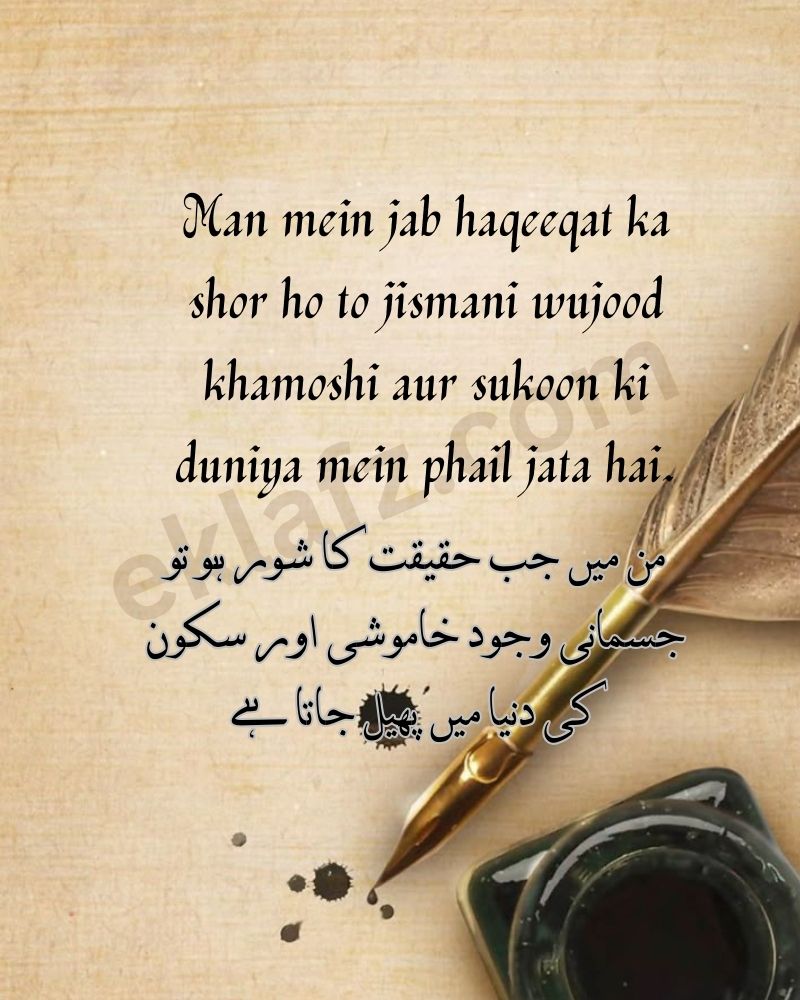 Man mein jab haqeeqat ka
shor ho to jismani wujood
khamoshi aur sukoon ki
duniya mein phail jata hai.
من میں جب حقیقت کا شور ہو تو
جسمانی وجود خاموشی اور سکون
کی دنیا میں پھیل جاتا ہے
eklafz.com